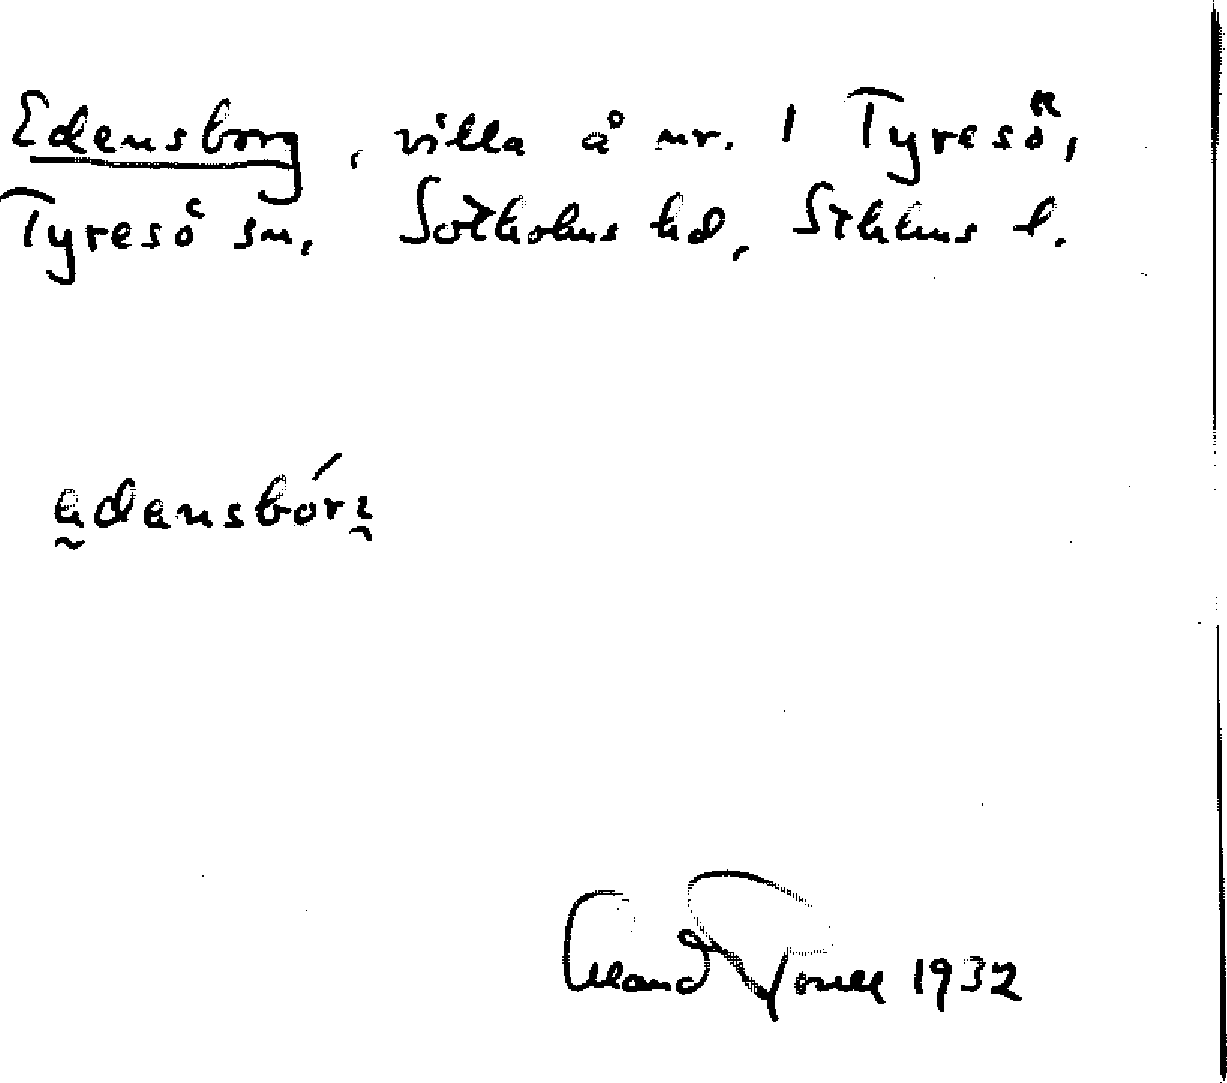 Edensborg, villa å nr. 1 Tyresö,
Tyresö sn, Sotholms hd, Sthlms l.
edensbórg
1932